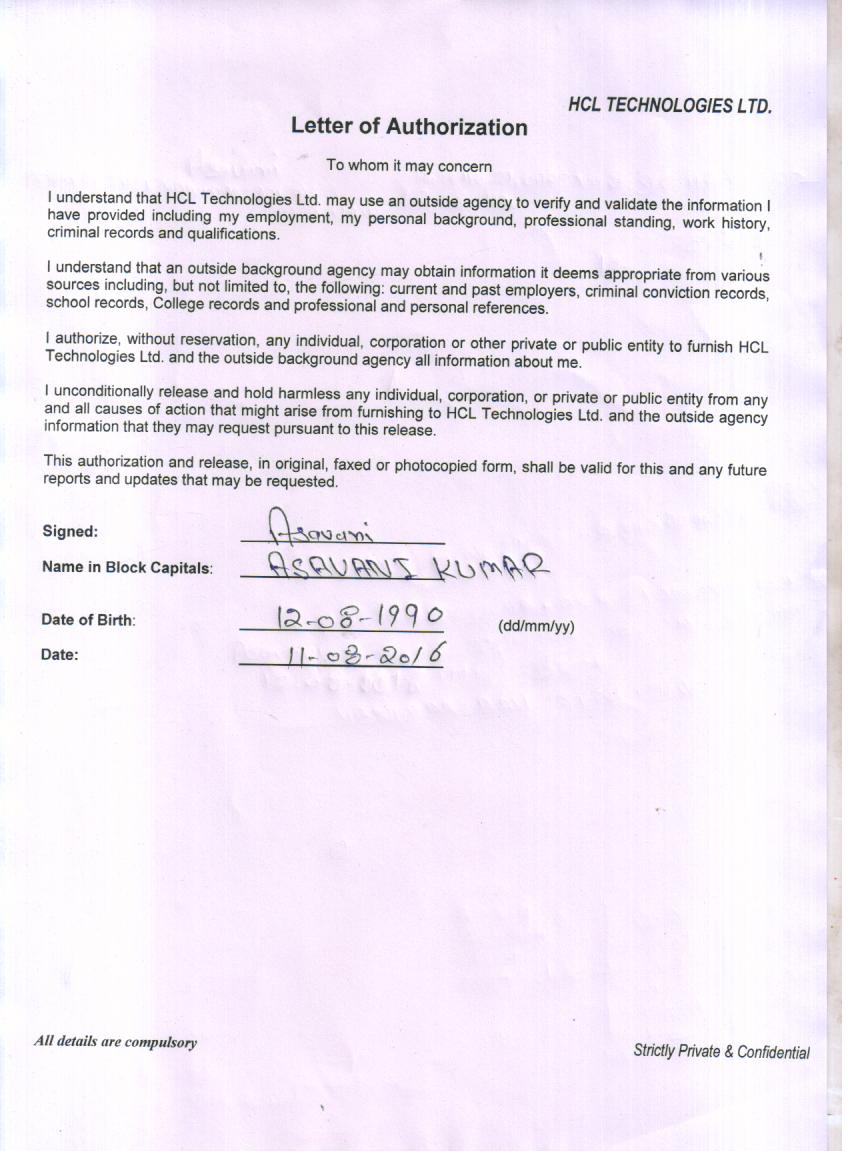 HCL TECHNOLOGIES LTD.
Letter of Authorization
To whom it may concern
I understand that HCL Technologies Ltd. may use an outside agency to verify and validate the information I
have provided including my employment, my personal background, professional standing, work history,
criminal records and qualifications.
I understand that an outside background agency may obtain information it deems appropriate from various
sources including, but not limited to, the following: current and past employers, criminal conviction records,
school records, College records and professional and personal references.
I authorize, without reservation, any individual, corporation or other private or public entity to furnish HCL
Technologies Ltd. and the outside background agency all information about me.
I unconditionally release and hold harmless any individual, corporation, or private or public entity from any
and all causes of action that might arise from furnishing to HCL Technologies Ltd. and the outside agency
information that they may request pursuant to this release.
This authorization and release, in original, faxed or photocopied form, shall be valid for this and any future
reports and updates that may be requested.
Signed: Asavani
Name in Block Capitals: ASAVANI KUMAR
Date of Birth: 12-08-1990 (dd/mm/yy)
Date: 11-08-2016
All details are compulsory
Strictly Private & Confidential